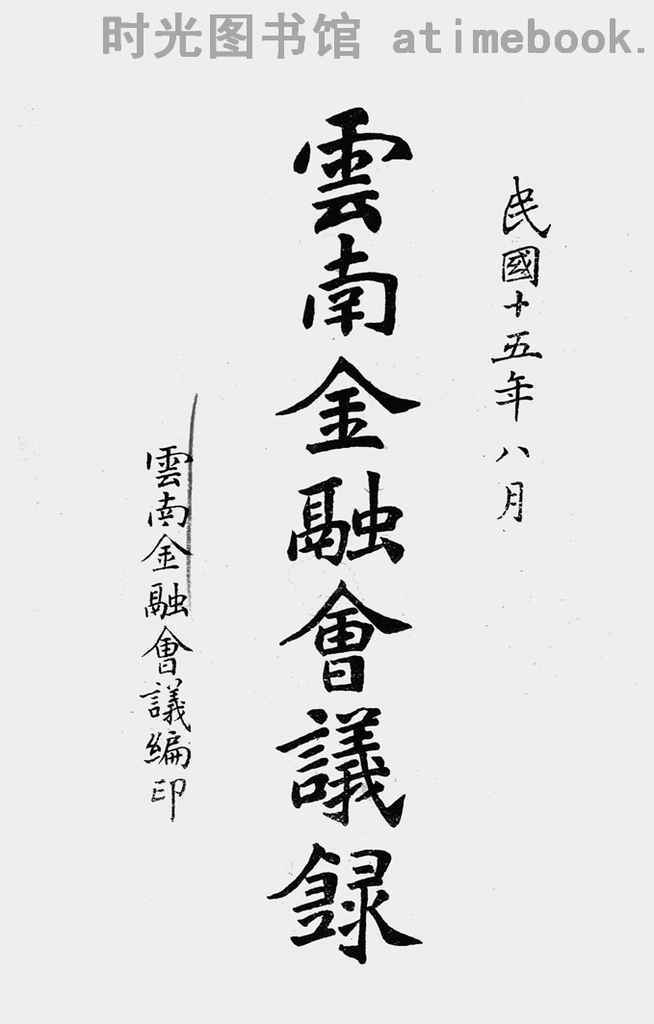 时光图书馆 atimebook.
民國十五年八月
雲南金融會議録
雲南金融會議編印